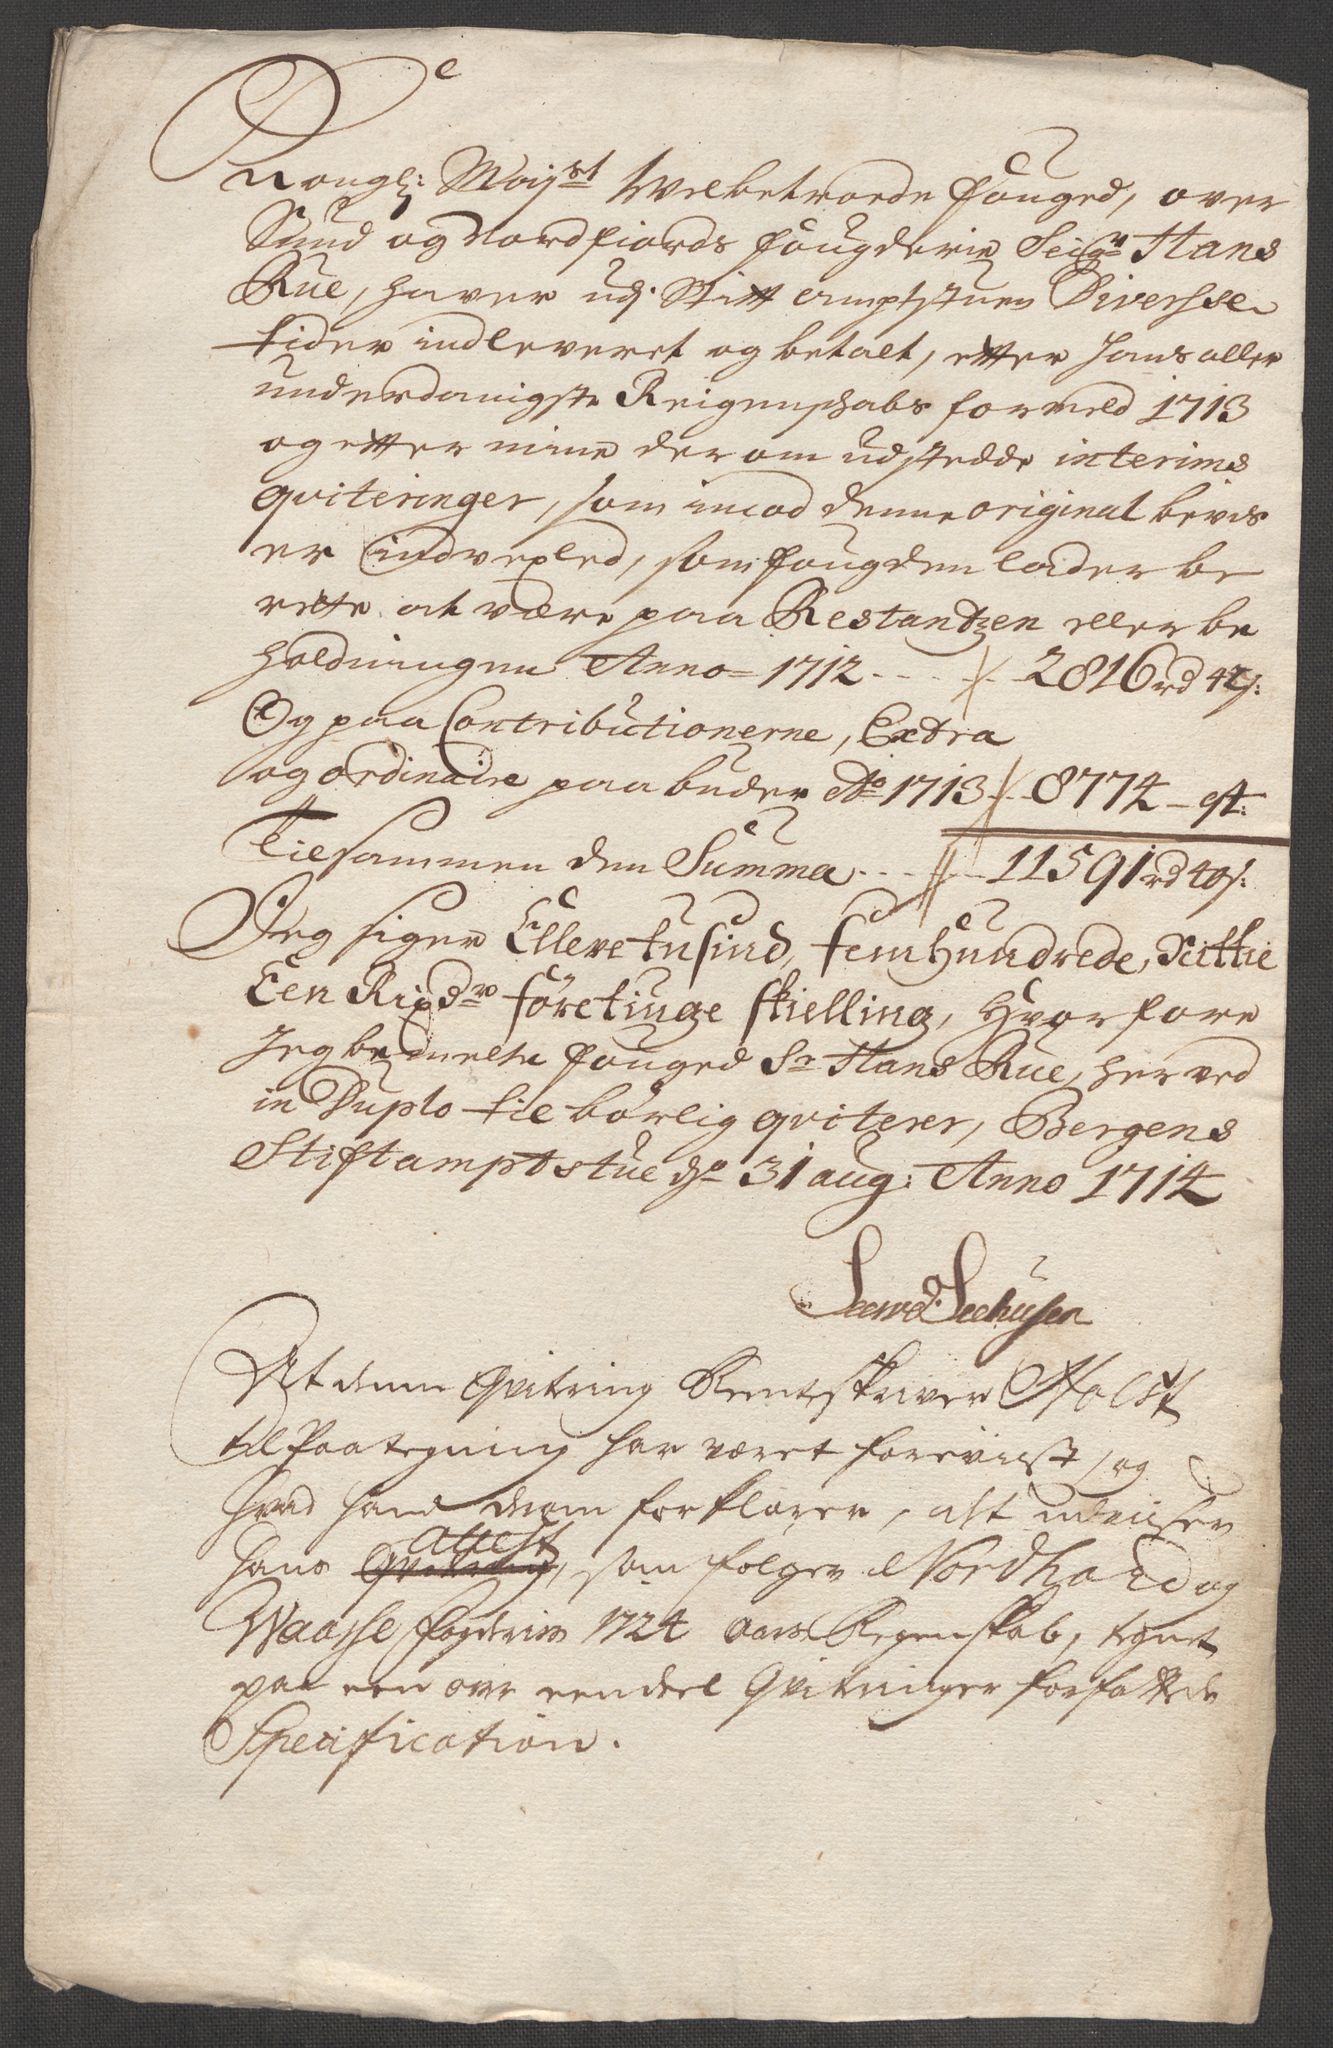 Kongl: Mayst Welbetroede fouged, over
Sund og Nordfiords fougderie Seigr Hans
Rue, haver udj Stift amptstuen Diverhse
tider indleveret og betalt, efter hans aller
underdanigste Reigenschabs formeld 1713
og efter mine der om udstedde interims
qviteringer, som imod denne original bevis
er indvexled, som fougden lader be
rette at være paa Restantzen eller be
holdningen Anno 1712 - - - 2816 rd 42 s:
Og paa Contributionerne, Extra
og ordinaire paabuder Ao 1713 - 8774 -
Tilsammen den Summa - - - 11591 rd 40 s:
Jeg siger Elleve tusind, fem Hundrede, Nittie
Een Rixdr företiuge skielling, Hvorfore
Jeg bemelte fouged Sr Hans Rue, herved
in Duplo tilbörlig qviterer, Bergens
Stiftamptstue do 31 aug: Anno 1714
Severd: Seehusen
At denne Qvitering Renteskriver Holst
til Paategning har været foreviist, og
hvad hand derom forklarer, alt udviiser
hans attest, som følger Nordhorlehn og
Waasse fogderies 1724 aars Regenskab, tegnet
paa een over eendeel Qvitringer forfattede
Specification.